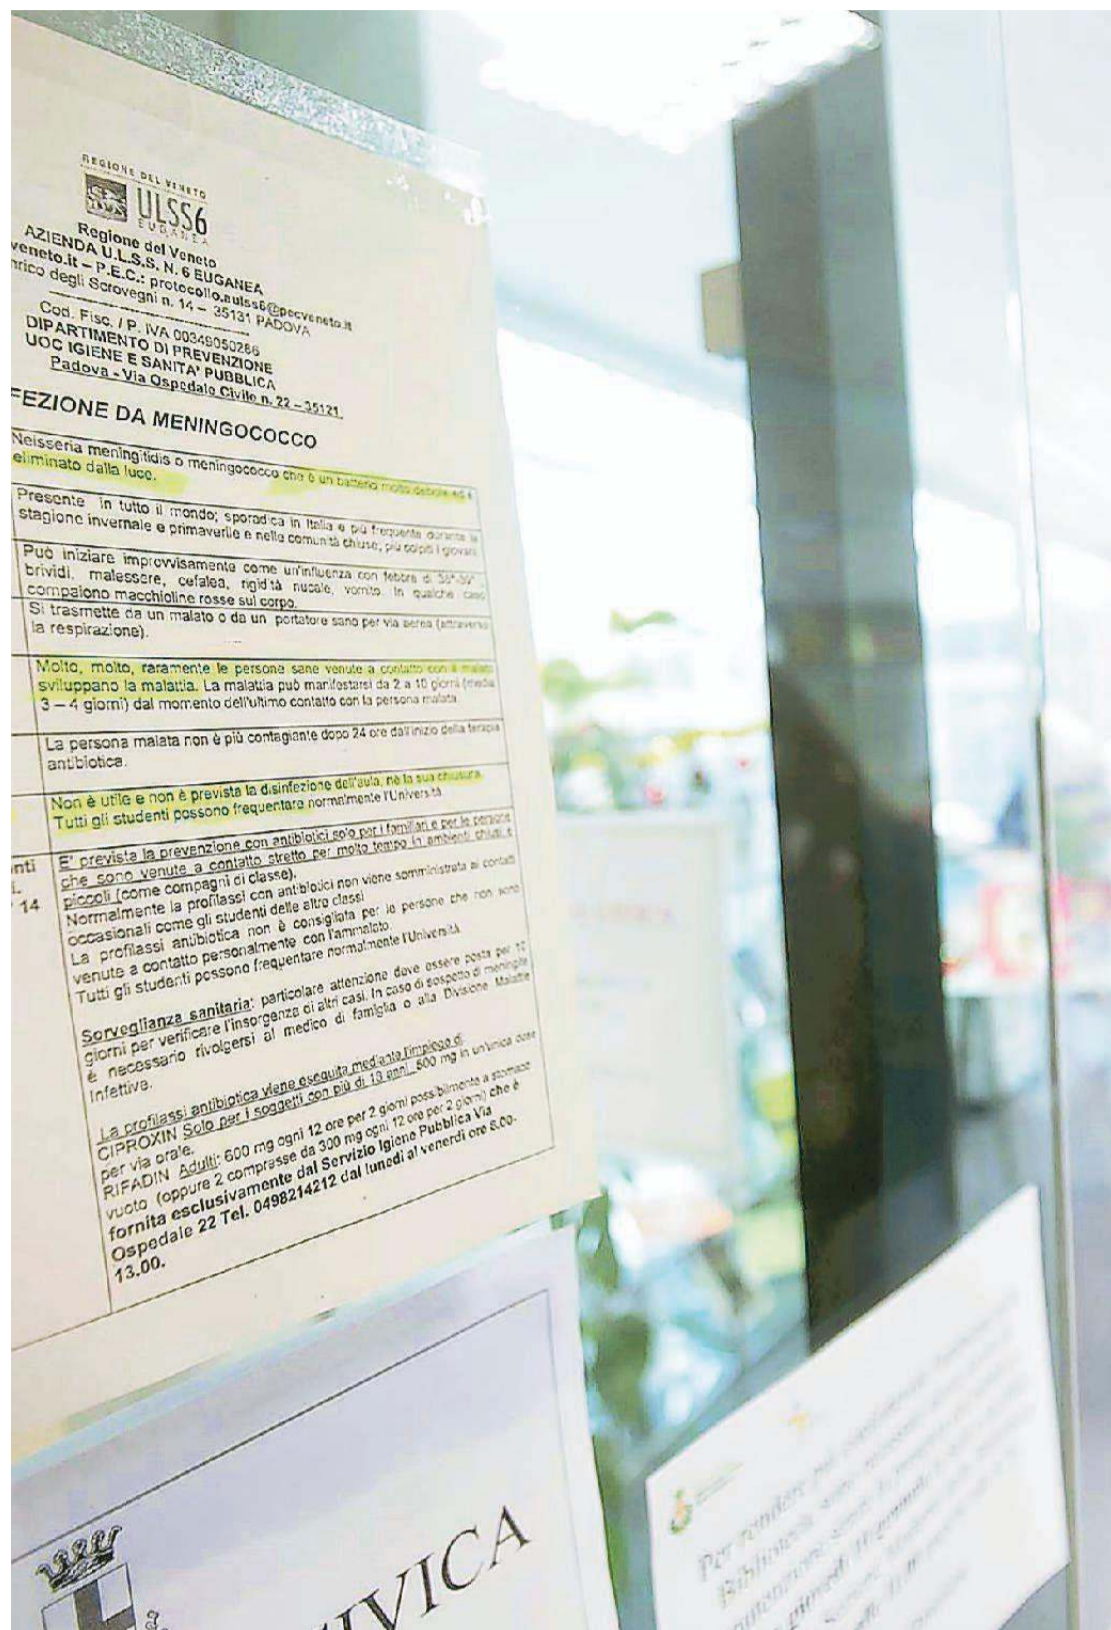 REGIONE DEL VENETO
ULSS6
EUGANEA
Regione del Veneto
AZIENDA U.L.S.S. N. 6 EUGANEA
veneto.it – P.E.C.: protocollo.aulss6@pecveneto.it
nrico degli Scrovegni n. 14 – 35131 PADOVA
Cod. Fisc. / P. IVA 00349050286
DIPARTIMENTO DI PREVENZIONE
UOC IGIENE E SANITA' PUBBLICA
Padova - Via Ospedale Civile n. 22 – 35121
FEZIONE DA MENINGOCOCCO
Neisseria meningitidis o meningococco che è un batterio molto debole ed è
eliminato dalla luce.
Presente in tutto il mondo; sporadica in Italia e più frequente durante la
stagione invernale e primaverile e nelle comunità chiuse; più colpiti i giovani
Può iniziare improvvisamente come un'influenza con febbre di 38°-39°,
brividi, malessere, cefalea, rigidità nucale, vomito. In qualche caso
compaiono macchioline rosse sul corpo.
Si trasmette da un malato o da un portatore sano per via aerea (attraverso
la respirazione).
Molto, molto, raramente le persone sane venute a contatto con il malato
sviluppano la malattia. La malattia può manifestarsi da 2 a 10 giorni (media
3 – 4 giorni) dal momento dell'ultimo contatto con la persona malata.
La persona malata non è più contagiante dopo 24 ore dall'inizio della terapia
antibiotica.
Non è utile e non è prevista la disinfezione dell'aula, nè la sua chiusura.
Tutti gli studenti possono frequentare normalmente l'Università
nti
14
E' prevista la prevenzione con antibiotici solo per i familiari e per le persone
che sono venute a contatto stretto per molto tempo in ambienti chiusi e
piccoli (come compagni di classe).
Normalmente la profilassi con antibiotici non viene somministrata ai contatti
occasionali come gli studenti delle altre classi
La profilassi antibiotica non è consigliata per le persone che non sono
venute a contatto personalmente con l'ammalato.
Tutti gli studenti possono frequentare normalmente l'Università.
Sorveglianza sanitaria: particolare attenzione deve essere posta per 10
giorni per verificare l'insorgenza di altri casi. In caso di sospetto di meningite
è necessario rivolgersi al medico di famiglia o alla Divisione Malattie
Infettive.
La profilassi antibiotica viene eseguita mediante l'impiego di:
CIPROXIN Solo per i soggetti con più di 18 anni 500 mg in un'unica dose
per via orale.
RIFADIN Adulti: 600 mg ogni 12 ore per 2 giorni possibilmente a stomaco
vuoto (oppure 2 compresse da 300 mg ogni 12 ore per 2 giorni) che è
fornita esclusivamente dal Servizio Igiene Pubblica Via
Ospedale 22 Tel. 0498214212 dal lunedì al venerdì ore 8.00-
13.00.
IVICA
Per rendere più